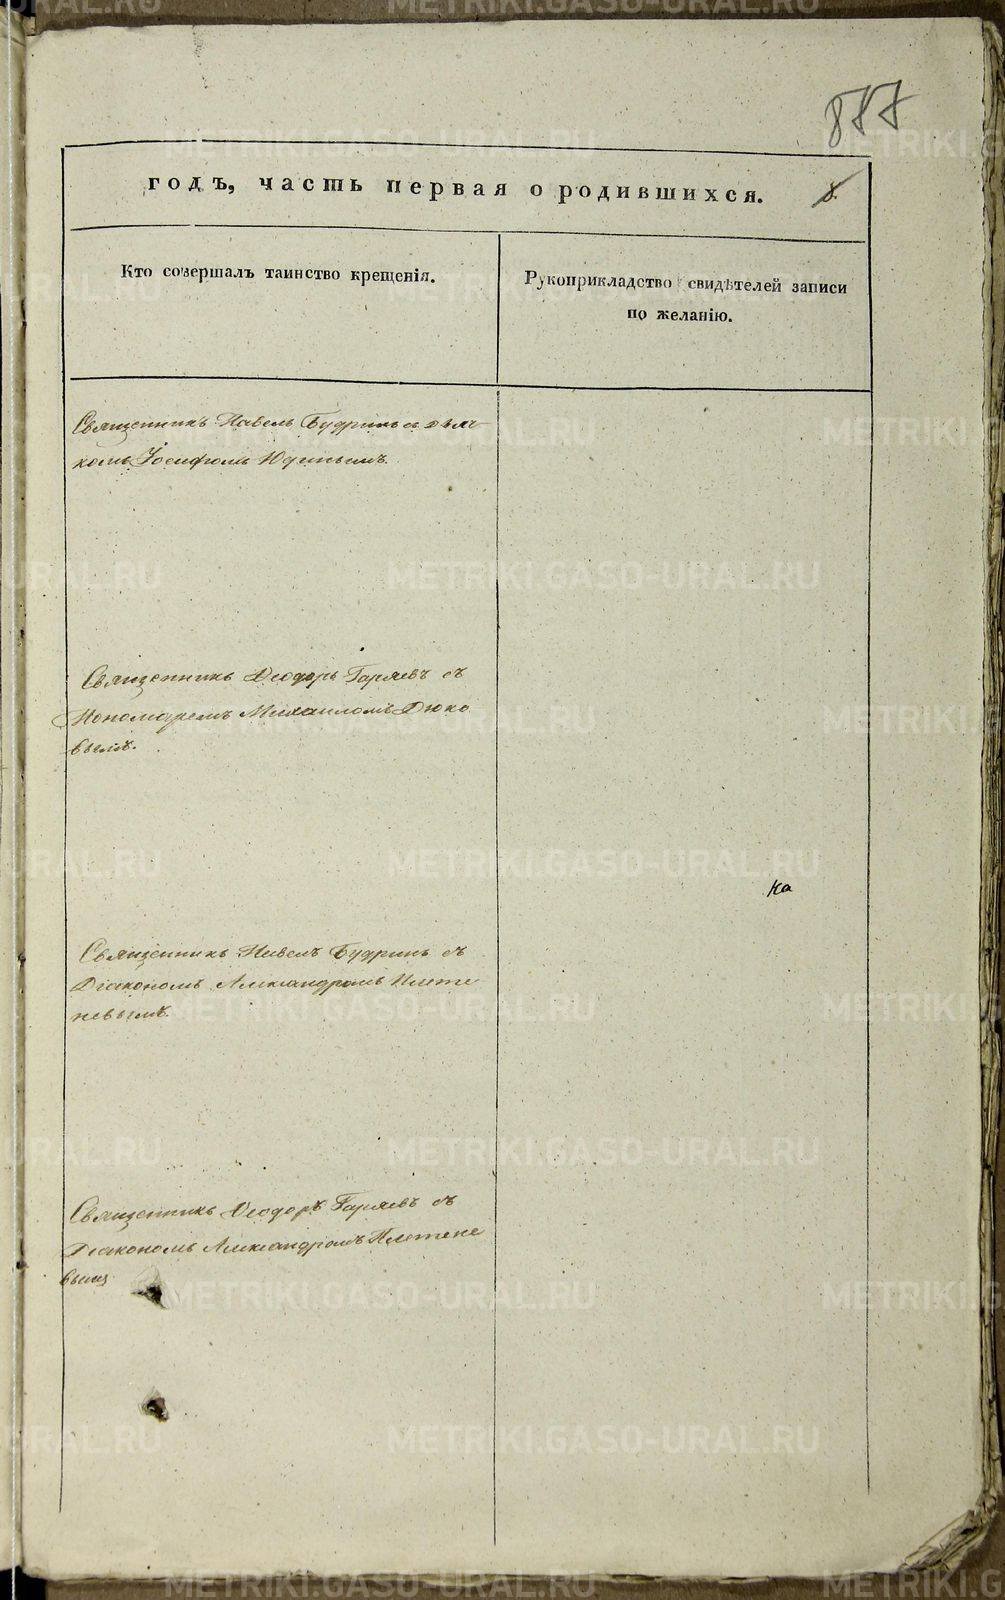 877
годъ, часть первая о родившихся.
8.
Кто совершалъ таинство крещенія.
Рукоприкладство свидѣтелей записи
по желанію.
Священникъ Павелъ Будринъ съ дьяч-
комъ Іосифомъ Юдинымъ.
Священникъ Ѳеодоръ Гаряевъ съ
Пономаремъ Михаиломъ Дюко
вымъ.
ка
Священникъ Павелъ Будринъ съ
Діакономъ Александромъ Плете
невымъ.
Священникъ Ѳеодоръ Гаряевъ съ
Діакономъ Александромъ Плетене
вымъ
METRIKI.GASO-URAL.RU